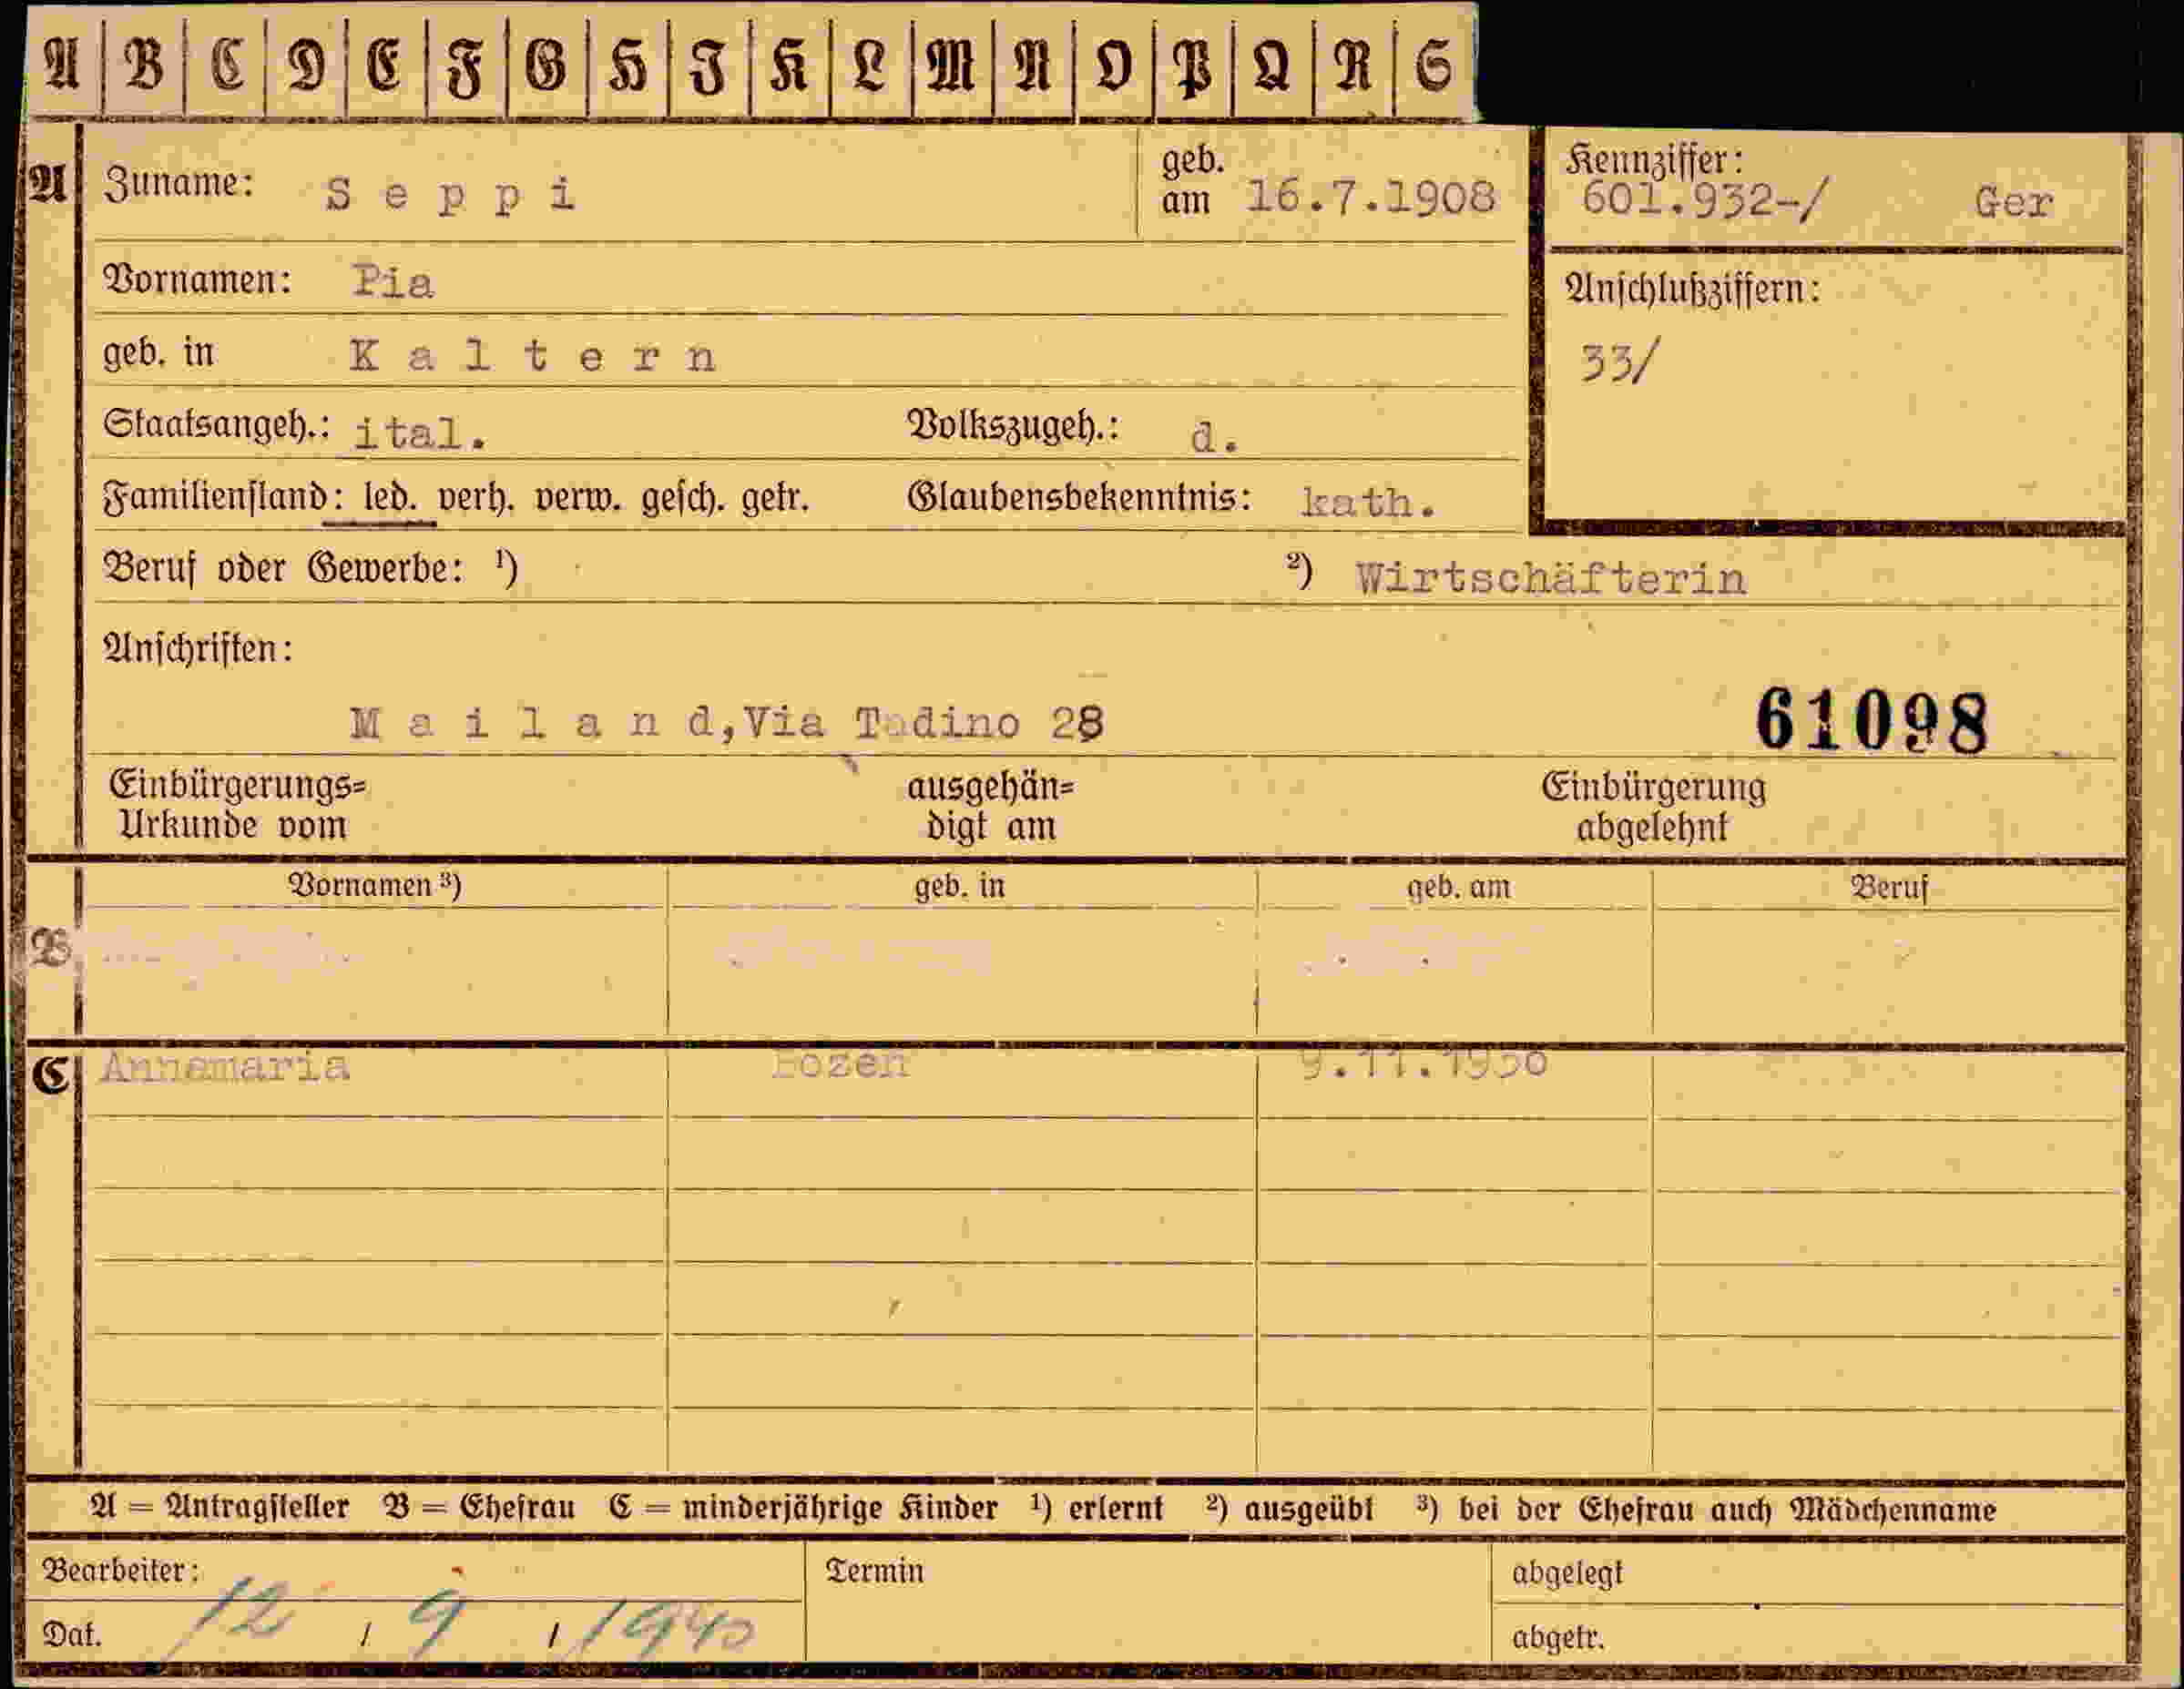 A B C D E F G H I K L M N O P Q R S
A Zuname: Seppi geb. am 16.7.1908 Kennziffer: 601.932-/ Ger
Vornamen: Pia Anschlußziffern:
geb. in Kaltern 33/
Staatsangeh.: ital. Volkszugeh.: d.
Familienstand: led. verh. verw. gesch. getr. Glaubensbekenntnis: kath.
Beruf oder Gewerbe: ¹) ²) Wirtschäfterin
Anschriften:
Mailand, Via Tadino 28 61098
Einbürgerungs= ausgehän= Einbürgerung
Urkunde vom digt am abgelehnt
Vornamen ³) geb. in geb. am Beruf
B
C Annamaria Bozen 9.11.1930
A = Antragsteller B = Ehefrau C = minderjährige Kinder ¹) erlernt ²) ausgeübt ³) bei der Ehefrau auch Mädchenname
Bearbeiter: Termin abgelegt
Dat. 12 / 9 / 1940 abgetr.